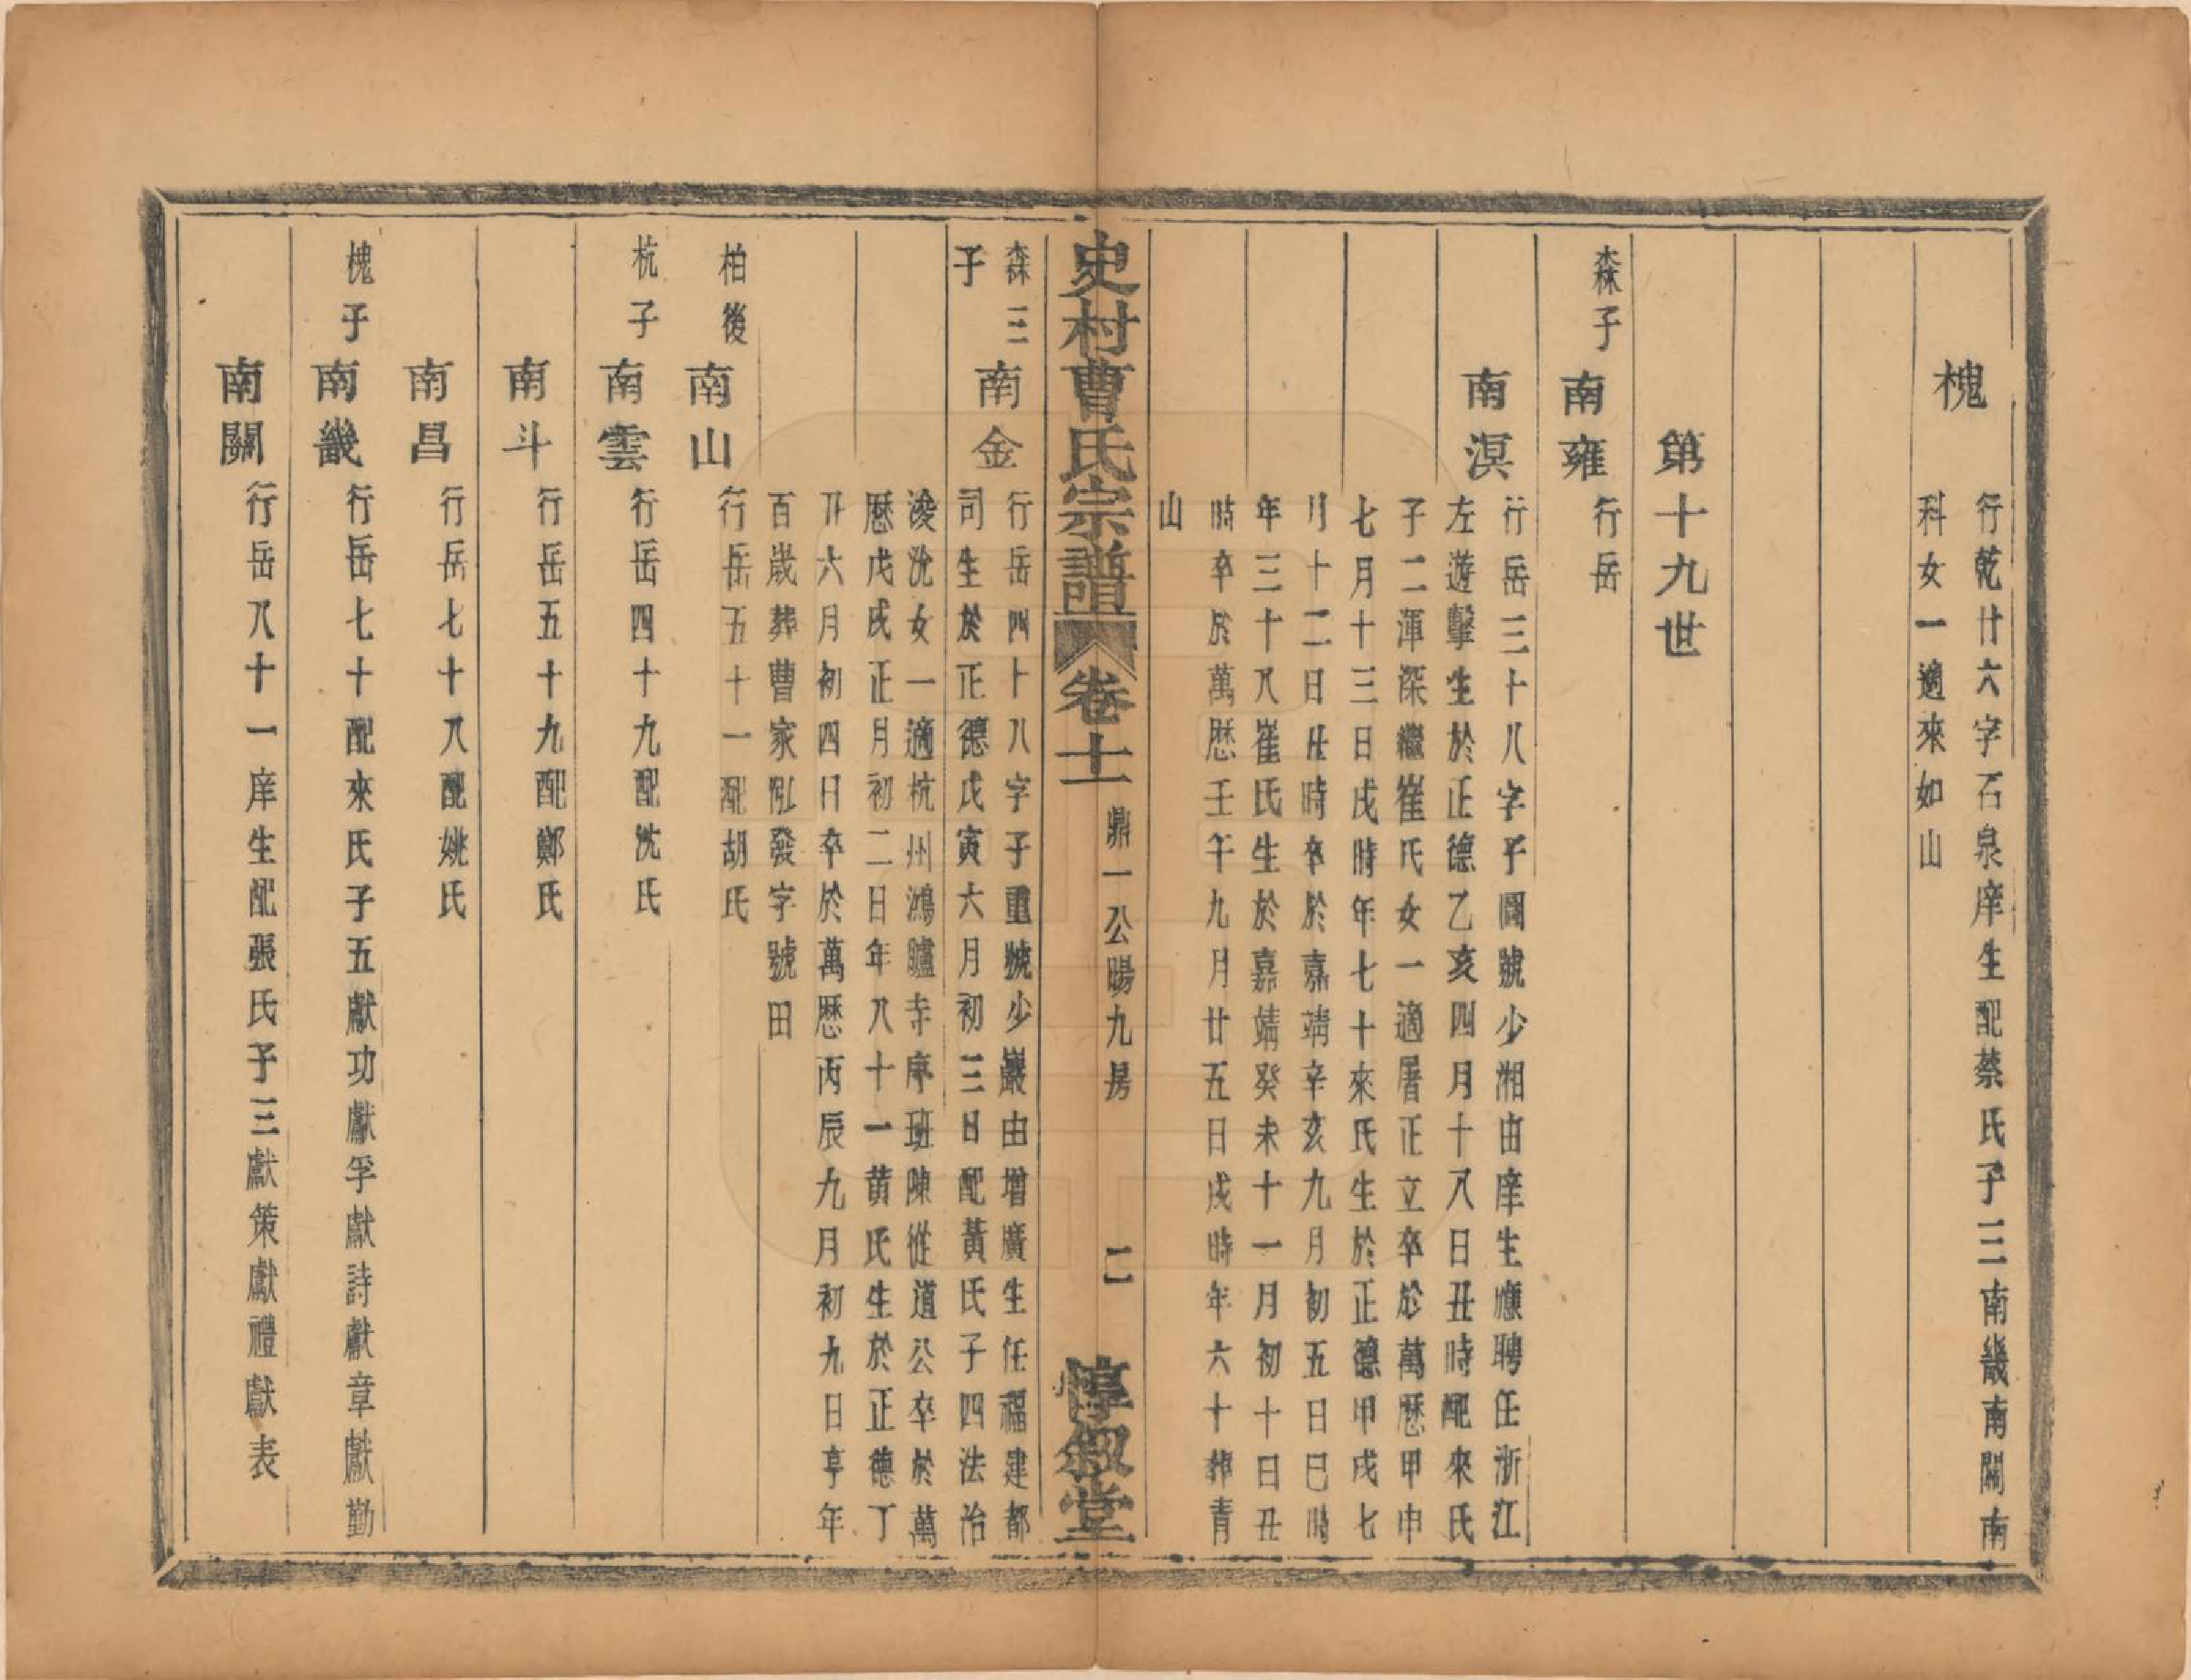 槐
行乾廿六字石泉庠生配蔡氏子三南畿南關南
科女一適來如山
第十九世
森子
南雍
行岳
南溟
行岳三十八字子圖號少湘由庠生應聘任浙江
左遊擊生於正德乙亥四月十八日丑時配來氏
子二渾深繼崔氏女一適屠正立卒於萬歷甲申
七月十三日戌時年七十來氏生於正德甲戌七
月十二日任時卒於嘉靖辛亥九月初五日巳時
年三十八崔氏生於嘉靖癸未十一月初十日丑
時卒於萬歷壬午九月廿五日戌時年六十葬青
山
史村曹氏宗譜
卷十一
鼎一公暘九房
二
惇敘堂
森三子
南金
行岳四十八字子重號少巖由增廣生任福建都
司生於正德戊寅六月初三日配黃氏子四法治
浚沇女一適杭州鴻臚寺序班陳從道公卒於萬
歷戊戌正月初二日年八十一黃氏生於正德丁
丑六月初四日卒於萬歷丙辰九月初九日享年
百歲葬曹家㘭發字號田
柏後
南山
行岳五十一配胡氏
杭子
南雲
行岳四十九配沈氏
南斗
行岳五十九配鄭氏
南昌
行岳七十八配姚氏
槐子
南畿
行岳七十配來氏子五獻功獻孚獻詩獻章獻勤
南關
行岳八十一庠生配張氏子三獻策獻禮獻表